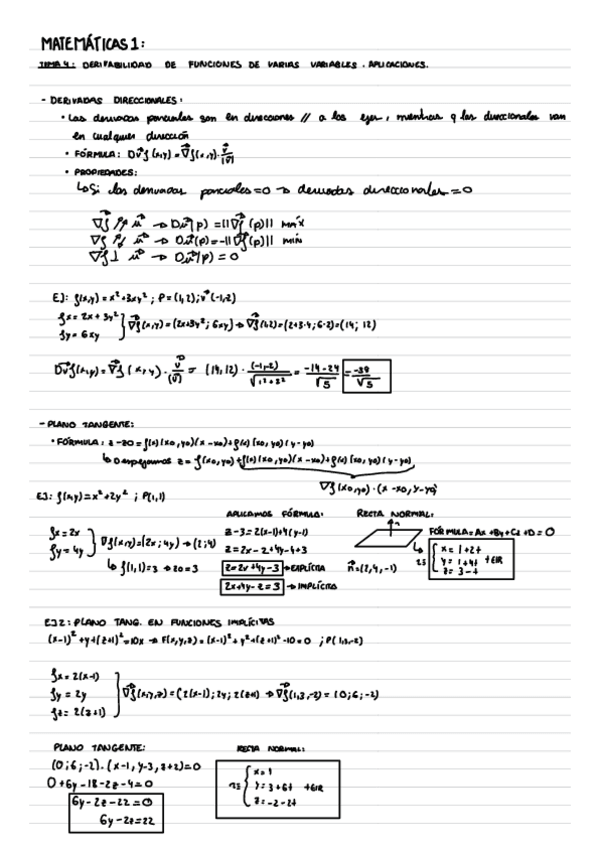 MATEMÁTICAS 1:
TEMA 4: DERIVABILIDAD DE FUNCIONES DE VARIAS VARIABLES. APLICACIONES.
- DERIVADAS DIRECCIONALES:
• Las derivadas parciales son en direcciones // a los ejes, mientras q las direccionales van
en cualquier dirección
• FÓRMULA: Dv⃗ f(x,y) = ∇⃗f(x,y)· v⃗/|v⃗|
• PROPIEDADES:
↳ Si las derivadas parciales = 0 → derivadas direccionales = 0
∇⃗f ⇈ u⃗ → Du⃗(p) = ||∇⃗f(p)|| MÁX
∇⃗f ⇅ u⃗ → Du⃗(p) = -||∇⃗f(p)|| MÍN
∇⃗f ⊥ u⃗ → Du⃗(p) = 0
EJ: f(x,y) = x² + 3xy² ; P = (1,2); v⃗(-1,2)
fx = 2x + 3y²
fy = 6xy
} ∇⃗f(x,y) = (2x+3y²; 6xy) → ∇⃗f(1,2) = (2+3·4; 6·2) = (14; 12)
Dv⃗f(x,y) = ∇⃗f(x,y) · v⃗/|v⃗| = (14,12) · (-1,-2)/√1²+2² = -14-24/√5 = -38/√5
- PLANO TANGENTE:
• FÓRMULA: z - z0 = f(x)(x0,y0)(x-x0) + f(y)(x0,y0)(y-y0)
↳ Despejamos z = f(x0,y0) + f(x)(x0,y0)(x-x0) + f(y)(x0,y0)(y-y0)
∇⃗f(x0,y0)·(x-x0, y-y0)
EJ: f(x,y) = x² + 2y² ; P(1,1)
APLICAMOS FÓRMULA: RECTA NORMAL:
fx = 2x
fy = 4y
} ∇⃗f(x,y) = (2x; 4y) → (2;4)
↳ f(1,1) = 3 → z0 = 3
z-3 = 2(x-1)+4(y-1)
z = 2x-2+4y-4+3
z = 2x+4y-3 → EXPLÍCITA
2x+4y-z = 3 → IMPLÍCITA
n⃗ = (2,4,-1)
FÓRMULA = Ax+By+Cz+D = 0
r≡ { x = 1+2t
y = 1+4t +∈ℝ
z = 3-t
EJ 2: PLANO TANG. EN FUNCIONES IMPLÍCITAS
(x-1)²+y²+(z+1)² = 10x → F(x,y,z) = (x-1)²+y²+(z+1)²-10 = 0 ; P(1,3,-2)
fx = 2(x-1)
fy = 2y
fz = 2(z+1)
} ∇⃗f(x,y,z) = (2(x-1); 2y; 2(z+1)) → ∇⃗f(1,3,-2) = (0;6;-2)
PLANO TANGENTE: RECTA NORMAL:
(0;6;-2)·(x-1, y-3, z+2) = 0
0+6y-18-2z-4 = 0
6y-2z-22 = 0
6y-2z = 22
r≡ { x = 1
y = 3+6t +∈ℝ
z = -2-2t